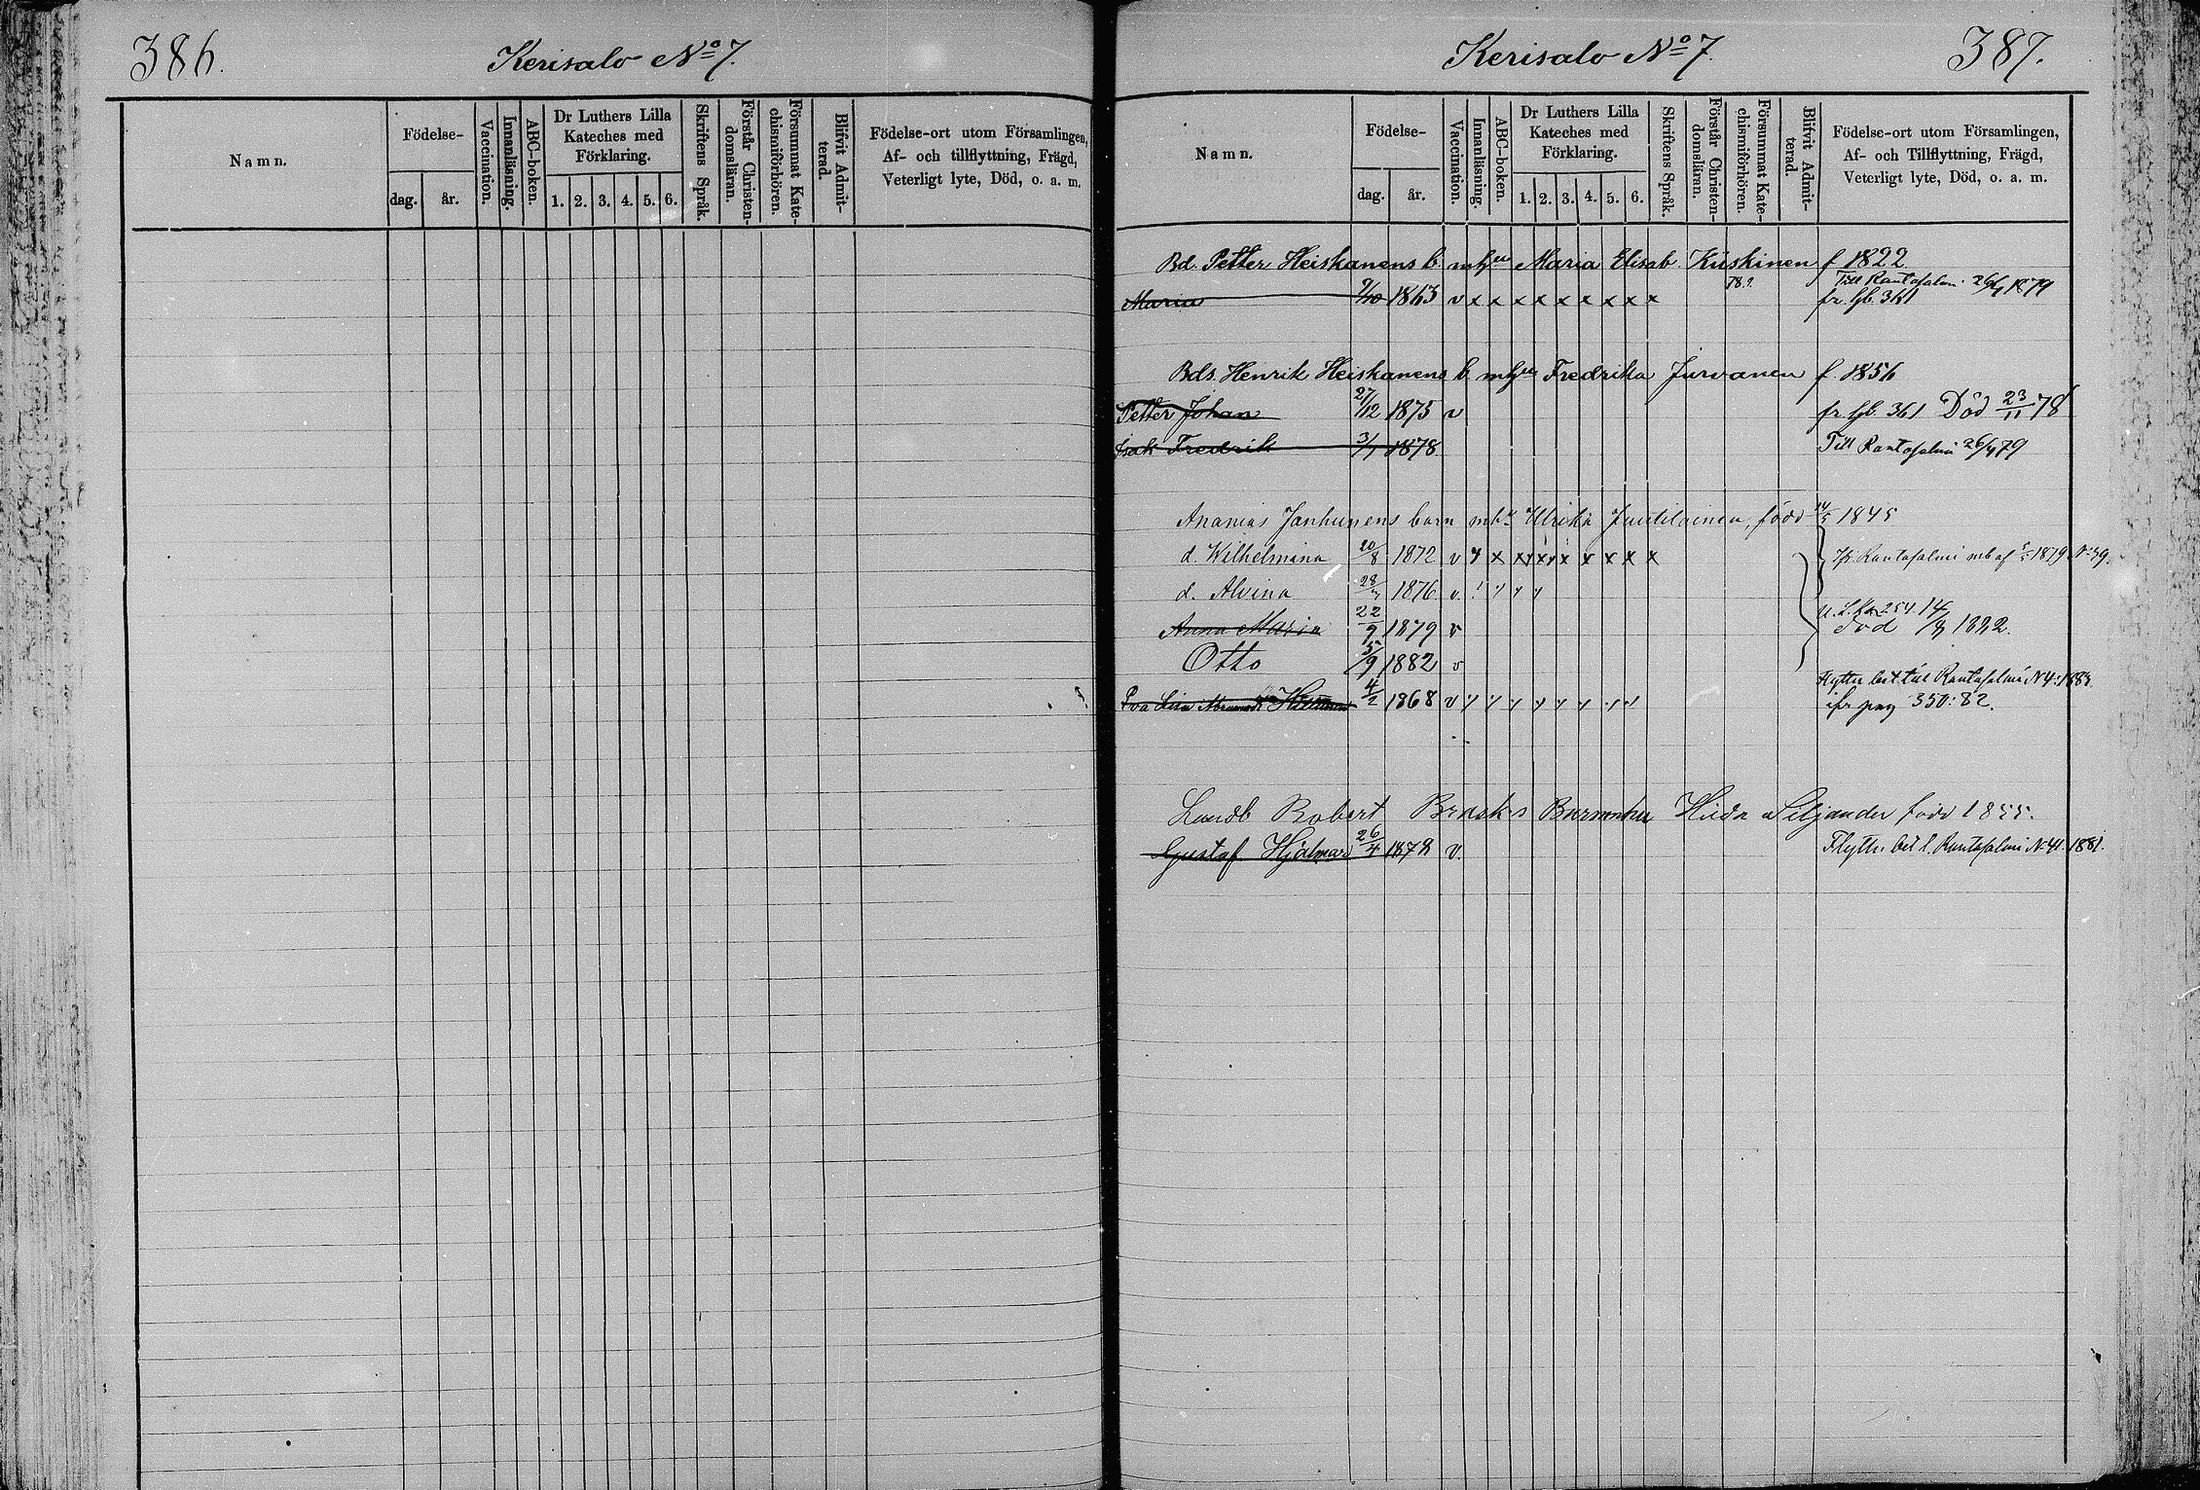 386.
Kerisalo No 7.
Namn.
Födelse-
dag.
år.
Vaccination.
Innanläsning.
ABC-boken.
Dr Luthers Lilla
Kateches med
Förklaring.
1. 2. 3. 4. 5. 6.
Skriftens Språk.
Förstår Christen-
domsläran.
Försummat Kate-
chismiförhören.
Blifvit Admit-
terad.
Födelse-ort utom Församlingen,
Af- och tillflyttning, Frägd,
Veterligt lyte, Död, o. a. m.
Kerisalo No 7.
387.
Namn.
Födelse-
dag.
år.
Vaccination.
Innanläsning.
ABC-boken.
Dr Luthers Lilla
Kateches med
Förklaring.
1. 2. 3. 4. 5. 6.
Skriftens Språk.
Förstår Christen-
domsläran.
Försummat Kate-
chismiförhören.
Blifvit Admit-
terad.
Födelse-ort utom Församlingen,
Af- och Tillflyttning, Frägd,
Veterligt lyte, Död, o. a. m.
Bd. Petter Heiskanens b. m hu Maria Elisab. Kiiskinen f 1822
Till Rantasalmi 1879
Maria 9/10 1863 v x x x x x x x x x fr. hb. 361
Bds. Henrik Heiskanens b. m hu Fredrika Jurvanen f. 1856
Petter Johan 27/12 1875 v fr hb 361 Död 23/11 78
Isak Fredrik 3/1 1878 Till Rantasalmi 26/4 79
Ananias Janhunens barn m h Ulrika Juutilainen, född 1845
d. Wilhelmina 20/8 1872 v x x x x x x x x x Ifr. Rantasalmi mb af 1879 No 39.
d. Alvina 1876 v.
Anna Maria 22/9 1879 v Död 1882.
Otto 5/9 1882 v
Flyttn. bet. till Rantasalmi N 4:
Eva 4/2 1868 v ifr pag 350:82.
Landb Robert Brasks Barn m hu Hilda Siljander född 1855.
Gustaf Hjalmar 26/4 1878 v. Flyttn. bet. t. Rantasalmi N 41. 1881.